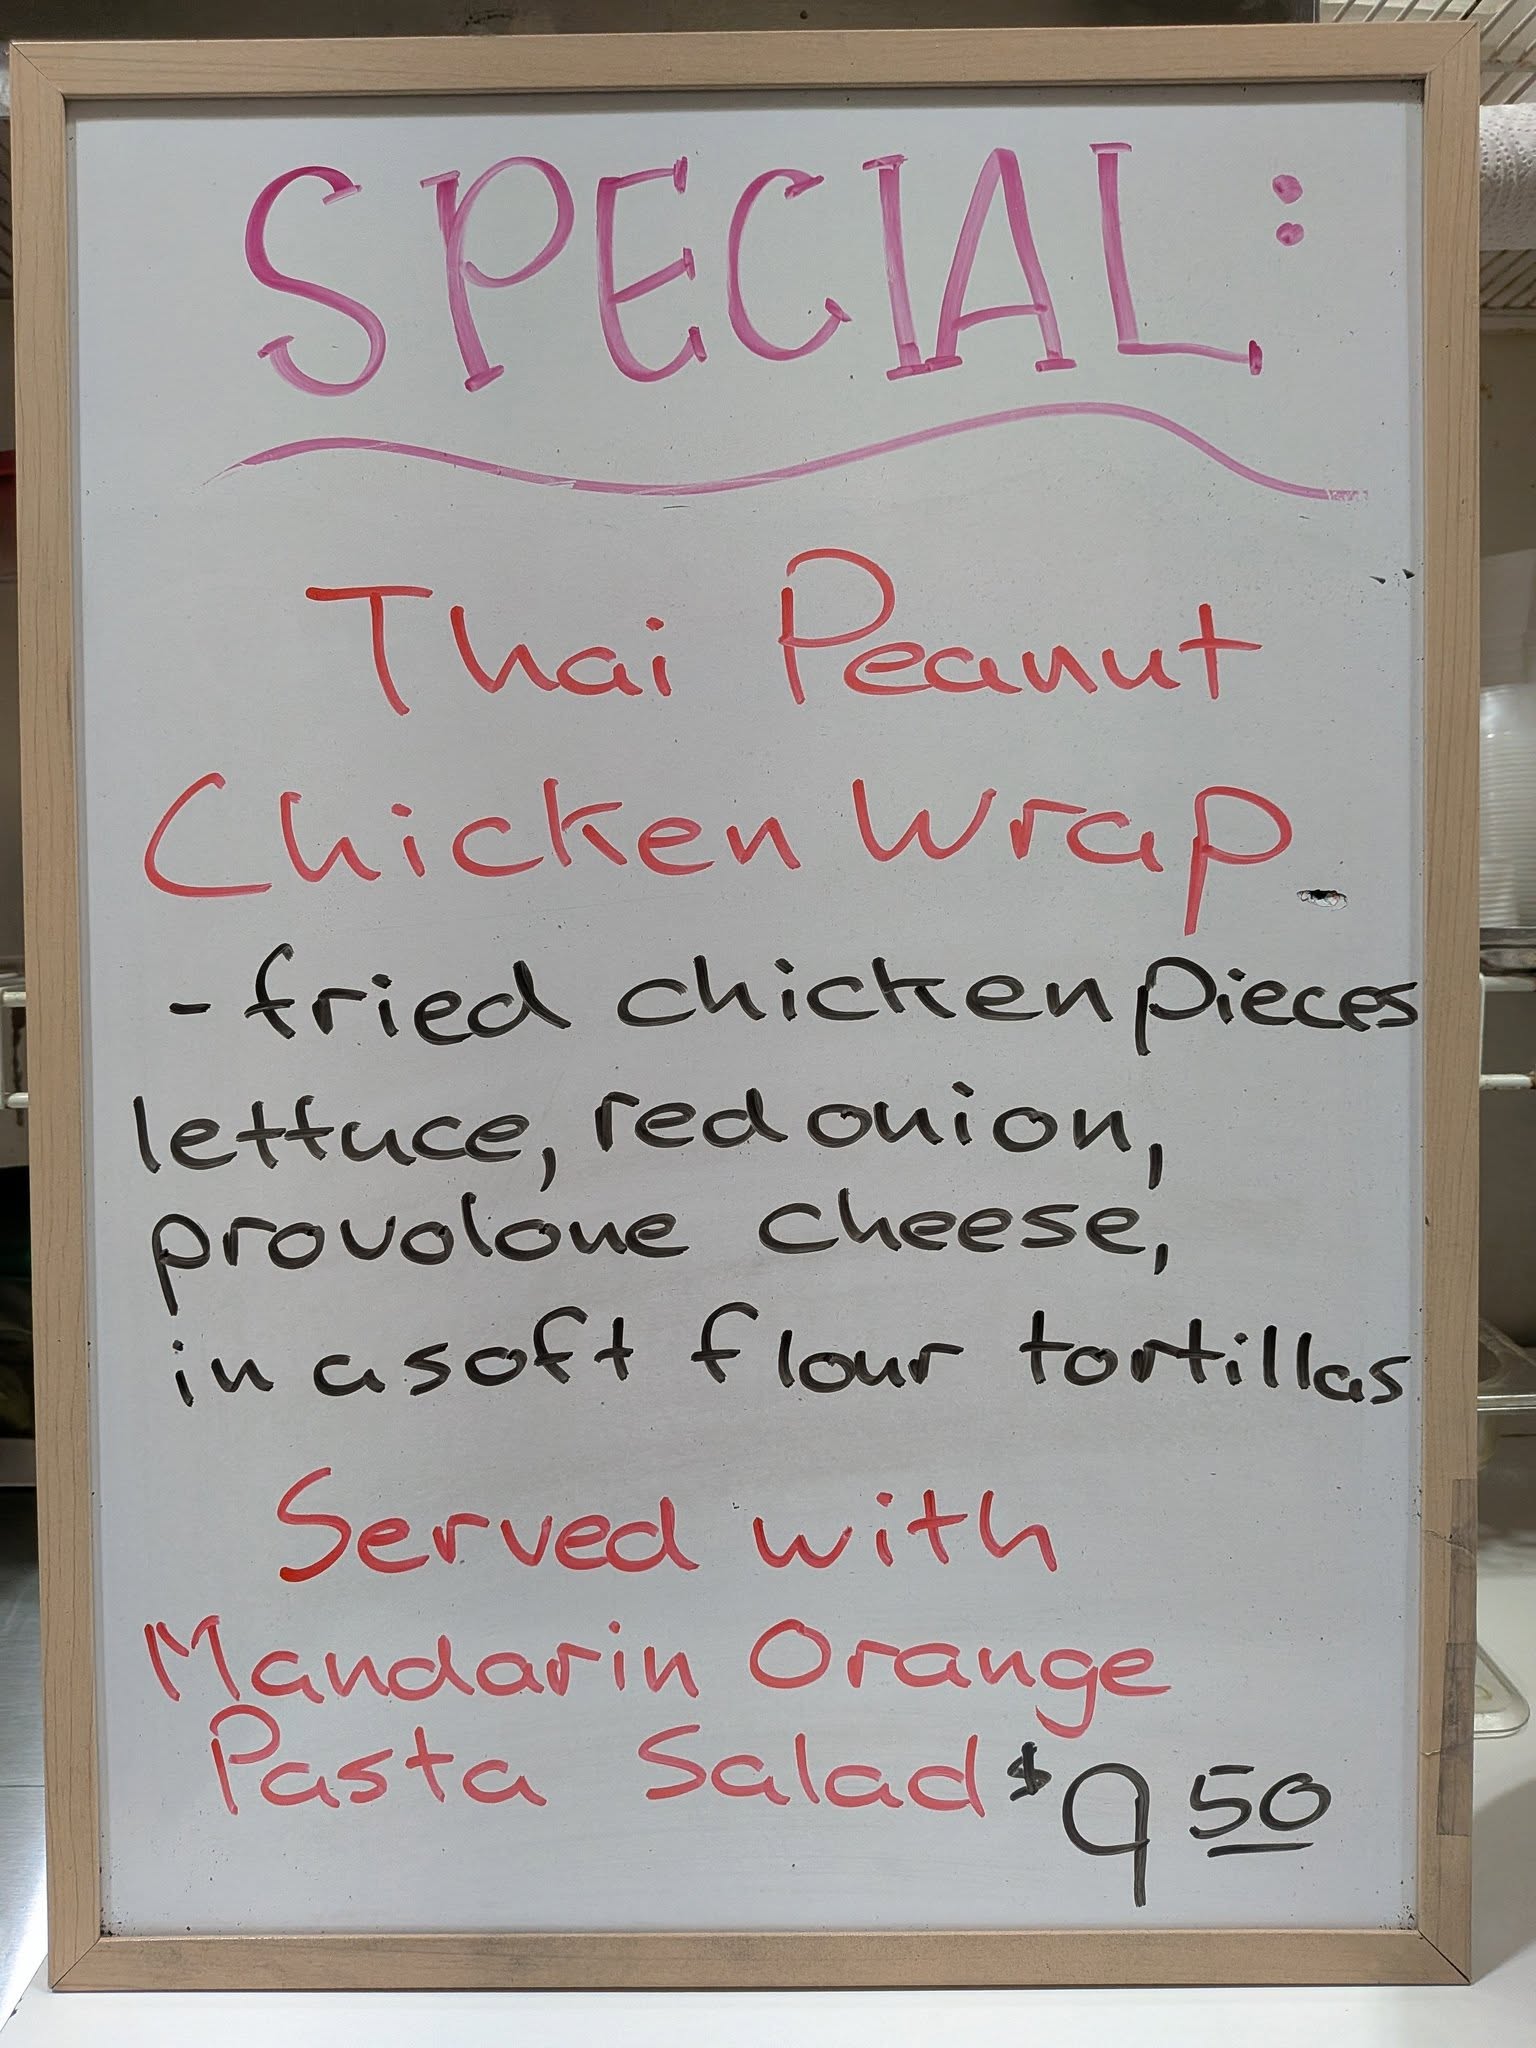 SPECIAL:
Thai Peanut
Chicken Wrap
- fried chicken pieces
lettuce, red onion,
provolone cheese,
in a soft flour tortillas
Served with
Mandarin Orange
Pasta Salad $9 50